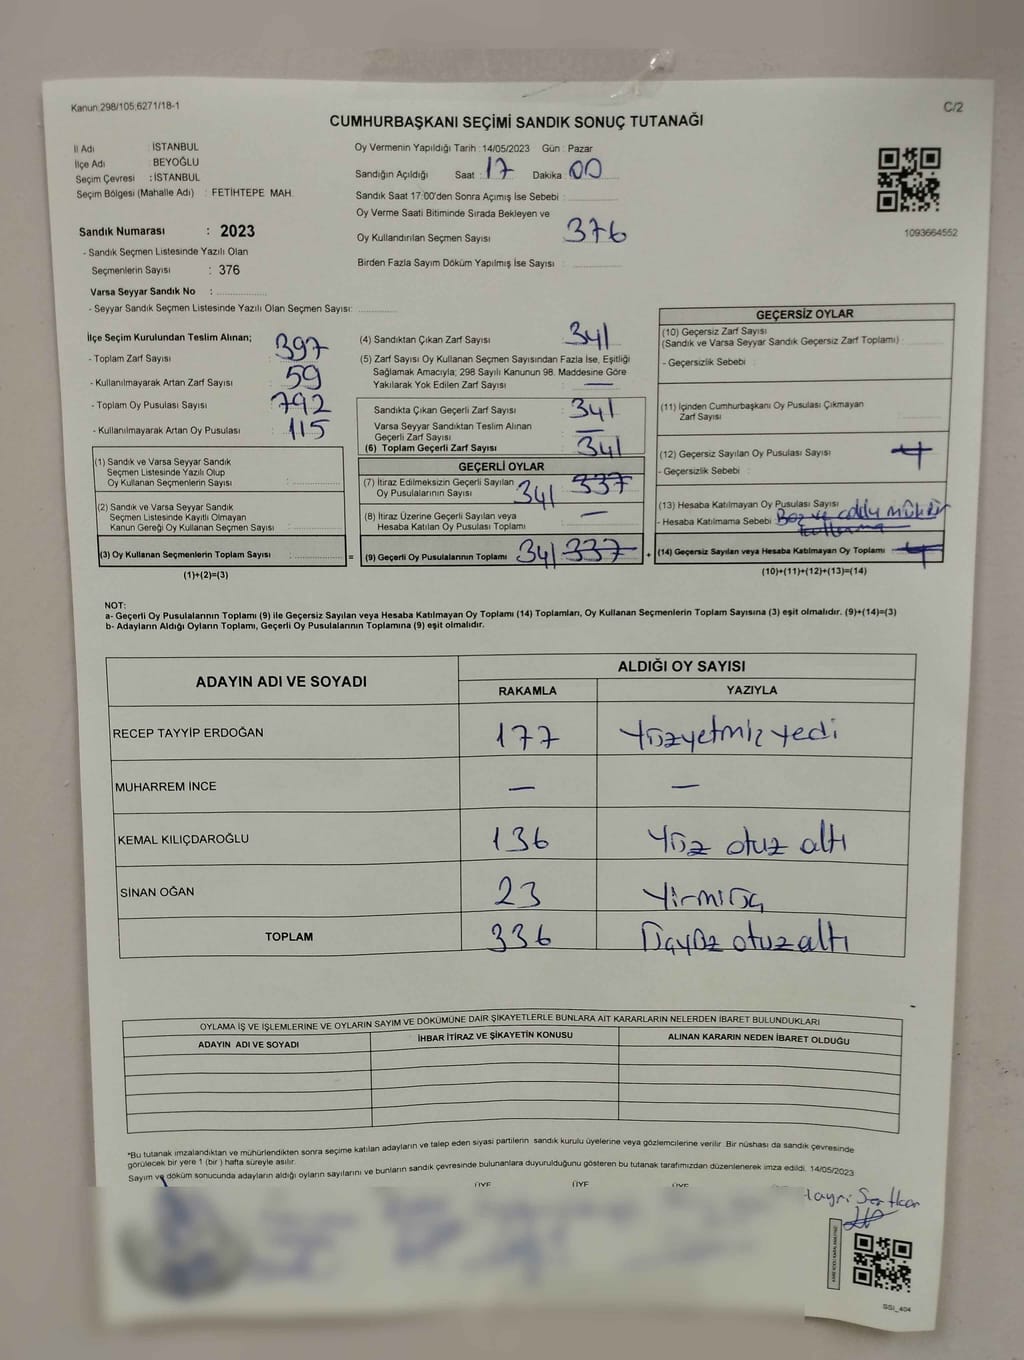 Kanun 298/105,6271/18-1
C/2
CUMHURBAŞKANI SEÇİMİ SANDIK SONUÇ TUTANAĞI
İl Adı : İSTANBUL
İlçe Adı : BEYOĞLU
Seçim Çevresi : İSTANBUL
Seçim Bölgesi (Mahalle Adı) : FETİHTEPE MAH.
Sandık Numarası : 2023
- Sandık Seçmen Listesinde Yazılı Olan
Seçmenlerin Sayısı : 376
Varsa Seyyar Sandık No :
- Seyyar Sandık Seçmen Listesinde Yazılı Olan Seçmen Sayısı:
Oy Vermenin Yapıldığı Tarih : 14/05/2023 Gün : Pazar
Sandığın Açıldığı Saat : 17 Dakika : 00
Sandık Saat 17:00'den Sonra Açımış İse Sebebi :
Oy Verme Saati Bitiminde Sırada Bekleyen ve
Oy Kullandırılan Seçmen Sayısı : 376
Birden Fazla Sayım Döküm Yapılmış İse Sayısı :
1093664552
İlçe Seçim Kurulundan Teslim Alınan;
- Toplam Zarf Sayısı : 397
- Kullanılmayarak Artan Zarf Sayısı : 59
- Toplam Oy Pusulası Sayısı : 792
- Kullanılmayarak Artan Oy Pusulası : 115
(1) Sandık ve Varsa Seyyar Sandık
Seçmen Listesinde Yazılı Olup
Oy Kullanan Seçmenlerin Sayısı :
(2) Sandık ve Varsa Seyyar Sandık
Seçmen Listesinde Kayıtlı Olmayan
Kanun Gereği Oy Kullanan Seçmen Sayısı :
(3) Oy Kullanan Seçmenlerin Toplam Sayısı : =
(1)+(2)=(3)
(4) Sandıktan Çıkan Zarf Sayısı : 341
(5) Zarf Sayısı Oy Kullanan Seçmen Sayısından Fazla İse, Eşitliği
Sağlamak Amacıyla; 298 Sayılı Kanunun 98. Maddesine Göre
Yakılarak Yok Edilen Zarf Sayısı : —
Sandıkta Çıkan Geçerli Zarf Sayısı : 341
Varsa Seyyar Sandıktan Teslim Alınan
Geçerli Zarf Sayısı : —
(6) Toplam Geçerli Zarf Sayısı : 341
GEÇERLİ OYLAR
(7) İtiraz Edilmeksizin Geçerli Sayılan
Oy Pusulalarının Sayısı : 341 337
(8) İtiraz Üzerine Geçerli Sayılan veya
Hesaba Katılan Oy Pusulası Toplamı : —
(9) Geçerli Oy Pusulalarının Toplamı : 341 337 +
GEÇERSİZ OYLAR
(10) Geçersiz Zarf Sayısı
(Sandık ve Varsa Seyyar Sandık Geçersiz Zarf Toplamı) :
- Geçersizlik Sebebi :
(11) İçinden Cumhurbaşkanı Oy Pusulası Çıkmayan
Zarf Sayısı :
(12) Geçersiz Sayılan Oy Pusulası Sayısı : 4
- Geçersizlik Sebebi :
(13) Hesaba Katılmayan Oy Pusulası Sayısı
- Hesaba Katılmama Sebebi :
(14) Geçersiz Sayılan veya Hesaba Katılmayan Oy Toplamı : 4
(10)+(11)+(12)+(13)=(14)
NOT:
a- Geçerli Oy Pusulalarının Toplamı (9) ile Geçersiz Sayılan veya Hesaba Katılmayan Oy Toplamı (14) Toplamları, Oy Kullanan Seçmenlerin Toplam Sayısına (3) eşit olmalıdır. (9)+(14)=(3)
b- Adayların Aldığı Oyların Toplamı, Geçerli Oy Pusulalarının Toplamına (9) eşit olmalıdır.
ADAYIN ADI VE SOYADI
ALDIĞI OY SAYISI
RAKAMLA YAZIYLA
RECEP TAYYİP ERDOĞAN 177 Yüzyetmiş yedi
MUHARREM İNCE — —
KEMAL KILIÇDAROĞLU 136 Yüz otuz altı
SİNAN OĞAN 23 Yirmiüç
TOPLAM 336 Üçyüz otuz altı
OYLAMA İŞ VE İŞLEMLERİNE VE OYLARIN SAYIM VE DÖKÜMÜNE DAİR ŞİKAYETLERLE BUNLARA AİT KARARLARIN NELERDEN İBARET BULUNDUKLARI
ADAYIN ADI VE SOYADI İHBAR İTİRAZ VE ŞİKAYETİN KONUSU ALINAN KARARIN NEDEN İBARET OLDUĞU
*Bu tutanak imzalandıktan ve mühürlendikten sonra seçime katılan adayların ve talep eden siyasi partilerin sandık kurulu üyelerine veya gözlemcilerine verilir. Bir nüshası da sandık çevresinde
görülecek bir yere 1 (bir ) hafta süreyle asılır.
Sayım ve döküm sonucunda adayların aldığı oyların sayılarını ve bunların sandık çevresinde bulunanlara duyurulduğunu gösteren bu tutanak tarafımızdan düzenlenerek imza edildi. 14/05/2023
ÜYE ÜYE ÜYE
SSI_404